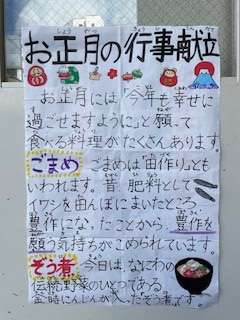 お正月の行事献立
お正月には「今年も幸せに
過ごせますように」と願って
食べる料理がたくさんあります。
ごまめ ごまめは「田作り」とも
いわれます。昔、肥料として
イワシを田んぼにまいたところ、
豊作になったことから、豊作を
願う気持ちがこめられています。
ぞう煮 今日は、なにわの
伝統野菜のひとつである
金時にんじんが入ったぞう煮です。